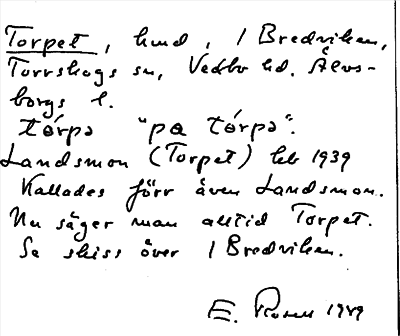 Torpet, hmd, 1 Bredviken,
Torrskogs sn, Vedbo hd. Älvs-
borgs l.
tórpə "pa tórpə".
Landsmon (Torpet) leb 1939
Kallades förr även Landsmon.
Nu säger man alltid Torpet.
Se skiss över 1 Bredviken.
E. Rosell 1949